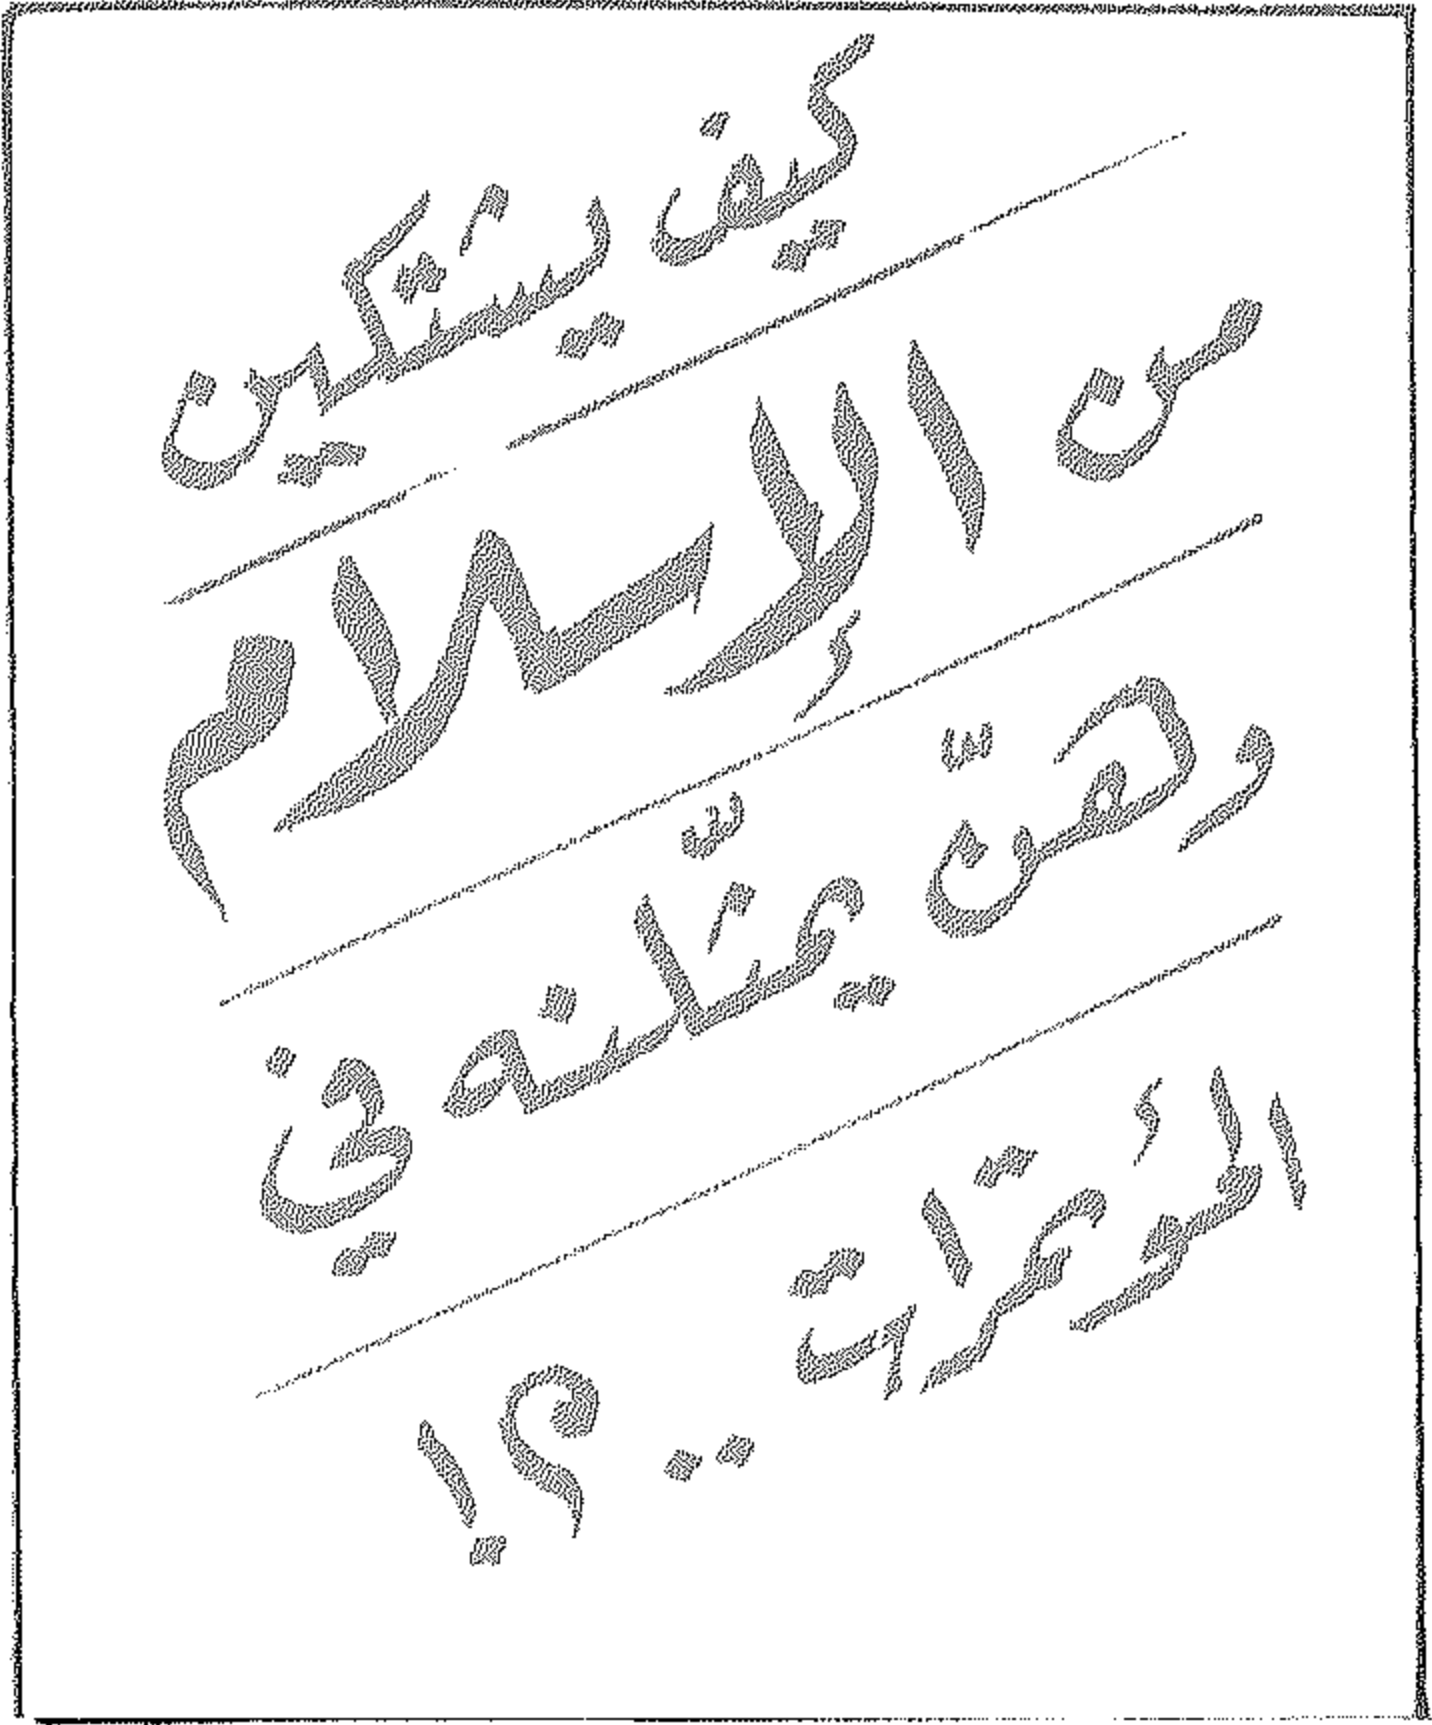 كيف يشتكين
من الإسلام
وهنّ يمثّلنه في
المؤتمرات ..؟!